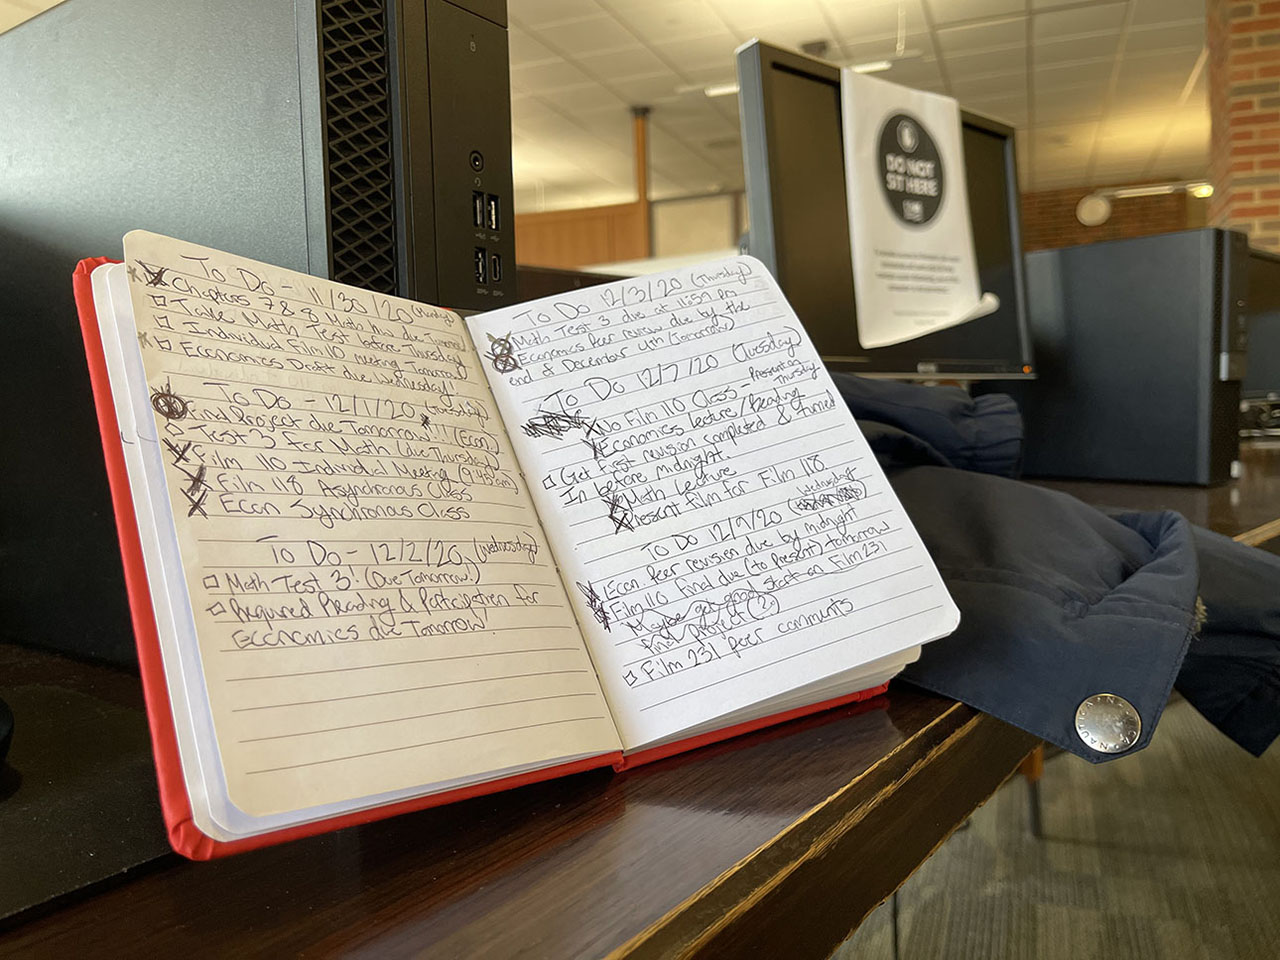 To Do - 11/30/20 (Monday)
Chapters 7 & 8 Math hw due Tomorrow
Take Math Test before Thursday
Individual Film 110 meeting Tomorrow
Economics Draft due Wednesday!
To Do - 12/1/20 (Tuesday)
Final Project due Tomorrow!!! (Econ)
Test 3 For Math (due Thursday)
Film 110 Individual Meeting (9:45am)
Film 118 Asynchronous Class
Econ Synchronous Class
To Do - 12/2/20, (Wednesday)
Math Test 3! (Due Tomorrow!)
Required Reading & Participation for
Economics due Tomorrow
To Do 12/3/20 (Thursday)
Math Test 3 due at 11:59 pm
Economics Peer review due by the
end of December 4th (Tomorrow)
To Do 12/7/20 (Tuesday)
No Film 110 Class - Present on
Thursday
Economics lecture/Reading
Get first revision completed & turned
In before midnight.
Math Lecture
Present film for Film 118.
To Do 12/9/20 (Wednesday)
Econ. Peer revision due by midnight
Film 110 final due (to present) tomorrow
Maybe get good start on Film 231
final project (?)
Film 231 peer comments
DO NOT
SIT HERE
NAUTICA